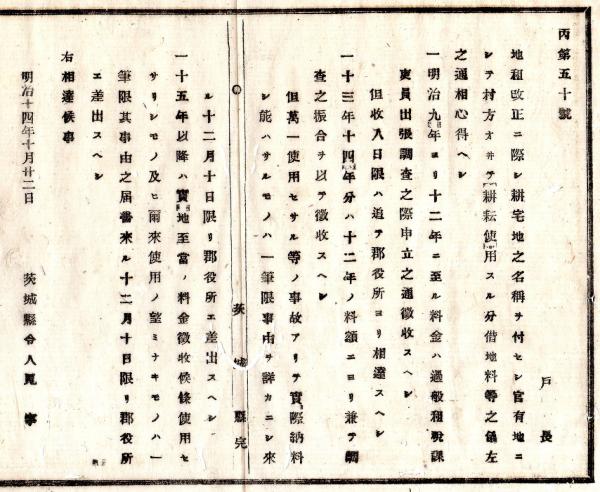 丙第五十號
戸長
地租改正ニ際シ耕宅地之名稱ヲ付セシ官有地ニ
シテ村方ニ於テ耕耘使用スル分借地料等之儀左
之通相心得ヘシ
一明治九年ヨリ十二年ニ至ル料金ハ過般租税課
吏員出張調査之際申立之通徴收スヘシ
但收入日限ハ追テ郡役所ヨリ相達スヘシ
一十三年十四年分ハ十二年ノ料額ニヨリ兼テ調
査之振合ヲ以テ徴收スヘシ
但萬一使用セサル等ノ事故アリテ實際納料
シ能ハサルモノハ一筆限事由ヲ詳カニシ來
茨城縣
ル十二月十日限リ郡役所エ差出スヘシ
一十五年以降ハ實地至當ノ料金徴收候條使用セ
サリシモノ及ヒ爾來使用ノ望ミナキモノハ一
筆限其事由之届書來ル十二月十日限リ郡役所
エ差出スヘシ
右相達候事
明治十四年十月廿二日
茨城縣令人見寧